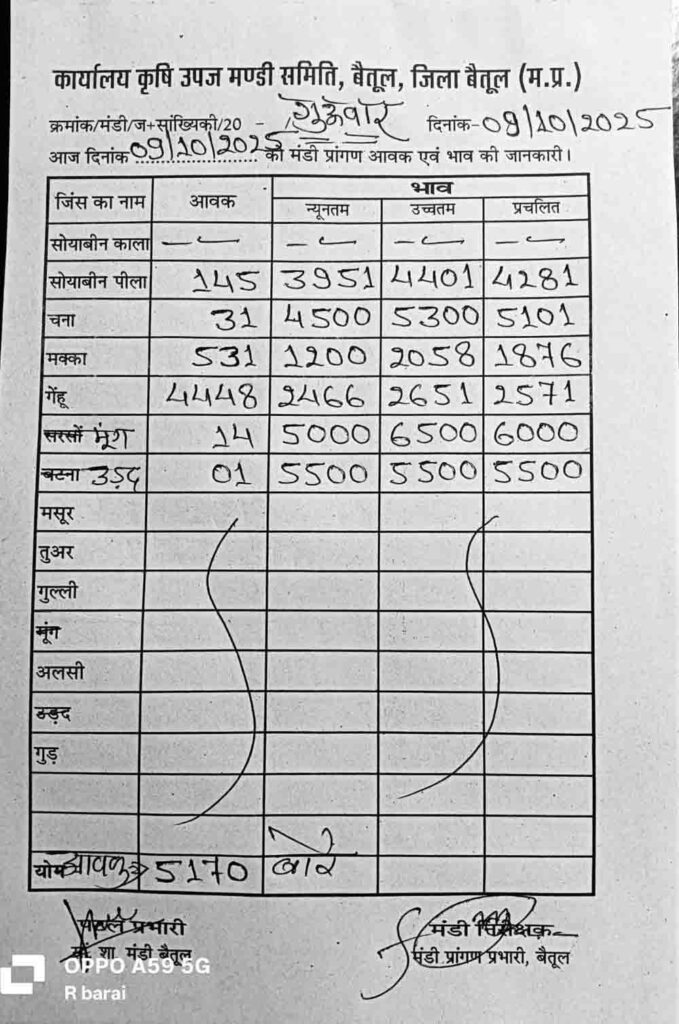 कार्यालय कृषि उपज मण्डी समिति, बैतूल, जिला बैतूल (म.प्र.)
क्रमांक/मंडी/ज+सांख्यिकी/20 - गुरूवार दिनांक-09/10/2025
आज दिनांक 09/10/2025 को मंडी प्रांगण आवक एवं भाव की जानकारी।
जिंस का नाम आवक भाव
न्यूनतम उच्चतम प्रचलित
सोयाबीन काला - - - -
सोयाबीन पीला 145 3951 4401 4281
चना 31 4500 5300 5101
मक्का 531 1200 2058 1876
गेंहू 4448 2466 2651 2571
सरसों मूंग 14 5000 6500 6000
बटना उड़द 01 5500 5500 5500
मसूर
तुअर
गुल्ली
मूंग
अलसी
उड़द
गुड़
योग आवक 5170 बोरे
प्रभारी मंडी निरीक्षक
शा मंडी बैतूल मंडी प्रांगण प्रभारी, बैतूल
OPPO A59 5G
R barai